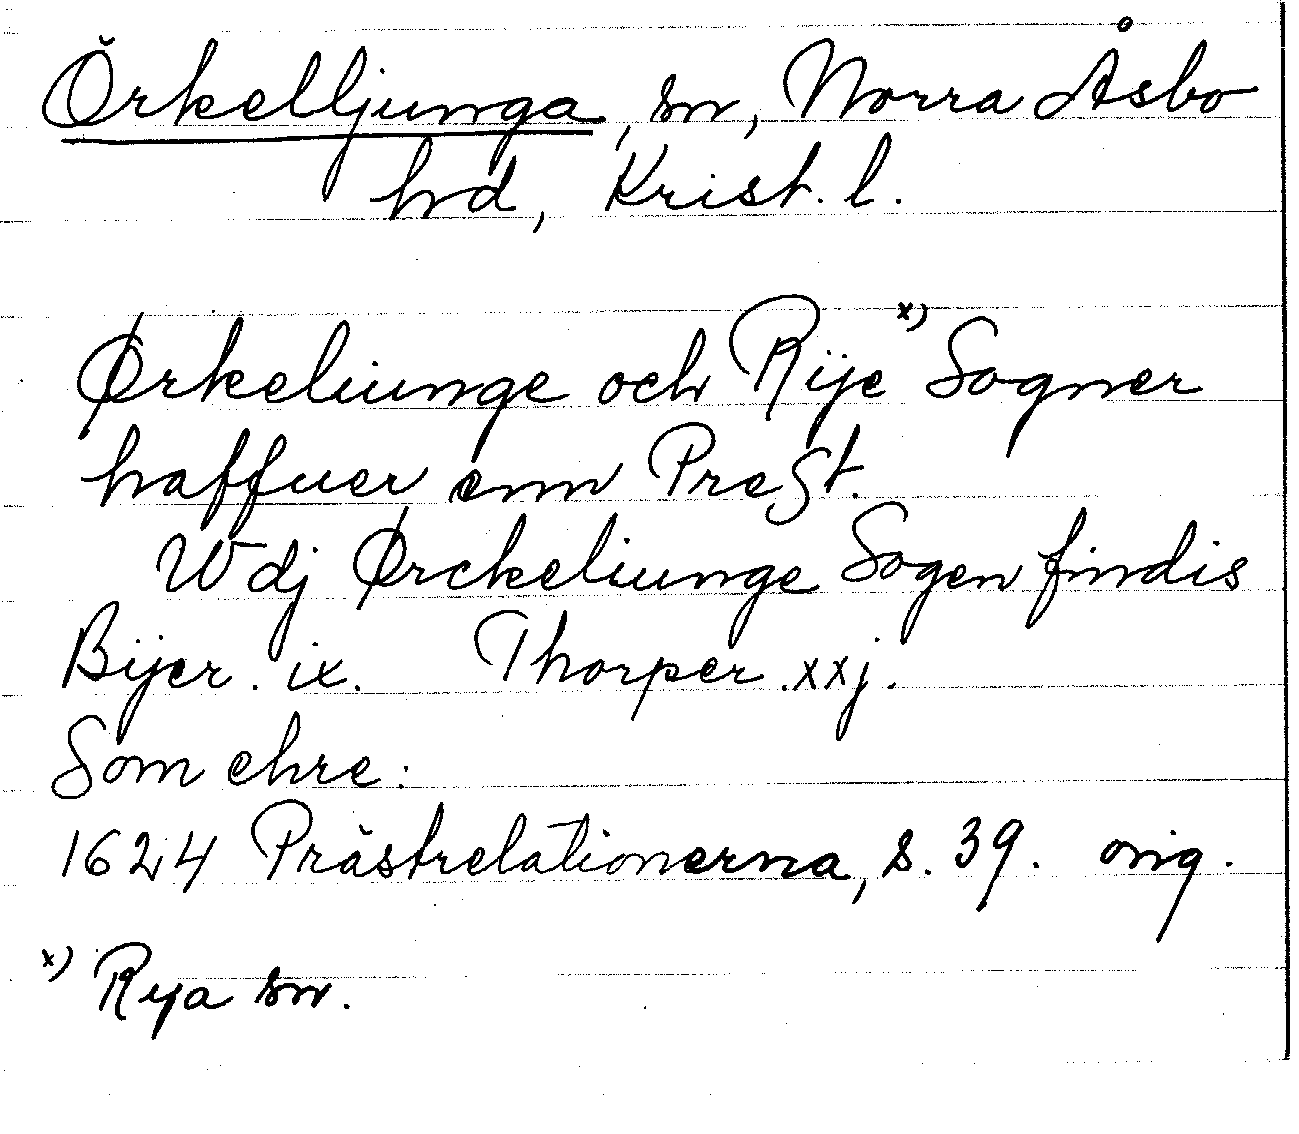 Örkelljunga, sn, Norra Åsbo
hd, Krist. l.
Ørkeliunge och Rije x) Sogner
haffuer enn PreSt.
Wdj Ørckeliunge Sogen findis
Bijer. ix. Thorper .xxj.
Som ehre:
1624 Prästrelationerna, s. 39. orig.
x) Rya sn.